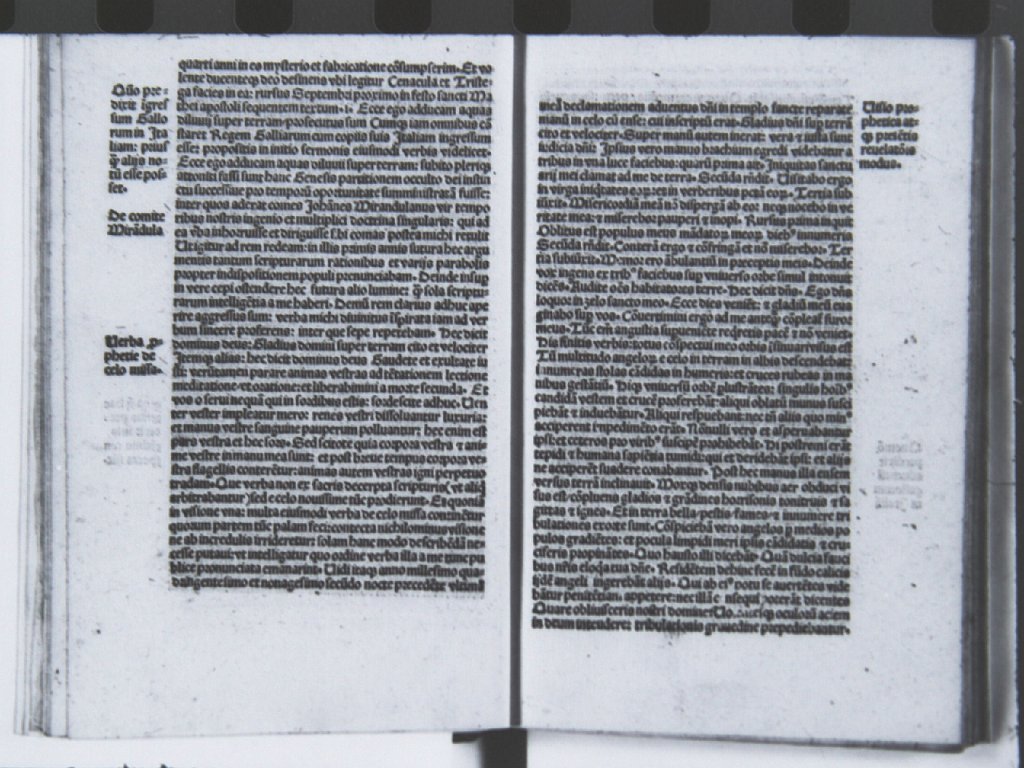 quarti anni in eo mysterio et fabricatione cõsumpserim. Et vo
lente ducenteqȝ deo desinens vbi legitur Cenacula et Triste
ga facies in ea: rursus Septembri proximo in festo sancti Ma
thei apostoli sequentem textum .i. Ecce ego adducam aquas
diluuij super terram: prosecutus sum Cumqȝ iam omnibus cõ
staret Regem Galliarum cum copijs suis Italiam ingressum
esse: propositis in initio sermonis eiusmodi verbis videlicet.
Ecce ego adducam aquas diluuij super terram: subito pleriqȝ
attoniti
Genesis partitionem occulto dei instin
ctu successiue pro temporũ oportunitate
inter quos aderat comes Johãnes Mirandulanus vir tempo
ribus nostris ingenio et multiplici doctrina singularis: qui ad
ea vba inhorruisse et diriguisse sibi comas postea michi retulit
Ut igitur ad rem redeam: in illis primis annis futura hec argu
mentis tantum scripturarum rationibus et varijs parabolis
propter indispositionem populi pronunciabam. Deinde insup
in vere cepi ostendere hec futura alio lumine: qȝ sola scriptu
rarum intelligẽtia a me haberi. Demũ rem clarius adhuc ape
rire aggressus sum: verba michi diuinitus ĩspirata iam ad ver
bum sincere proferens: inter que sepe repetebam. Hec dicit
dominus deus: Gladius domini super terram cito et velociter
Itemqȝ alias: hec dicit dominus deus Gaudete et exultate iu
sti: veruntamen parate animas vestras ad tẽtationem lectione
meditatione et oratione: et liberabimini a morte secunda. Et
vos o serui nequã qui in sordibus estis: sordescite adhuc. Uen
ter vester impleatur mero: renes vestri dissoluantur luxuria:
et manus vestre sanguine pauperum polluantur: hec enim est
pars vestra et hec sors. Sed scitote quia corpora vestra et ani-
me vestre in manu mea sunt: et post breue tempus corpora ve-
stra flagellis conterẽtur: animas autem vestras igni perpetuo
tradam. Que verba non ex sacris decerpta scripturis (vt aliqȝ
arbitrabantur) sed e celo nouissime tũc prodierunt. Et quoniã
in visione vna: multa eiusmodi verba de celo missa continẽtur
quorum partem tũc palam feci: contecta nichilominus visione
ne ab incredulis irrideretur: solam hanc modo describẽdã ne-
cesse putaui: vt intelligatur quo ordine verba illa a me tunc pu
blice pronunciata emanarint. Uidi itaqȝ anno millesimo qua-
dringentesimo et nonagesimo secũdo nocte precedẽte vltimã
Qñso pre-
dixit ĩgres
sum Gallo
rum in Ita
liam: prius
qȝ alijs no-
tũ esse pos-
set.
De comite
Mirãdula
Verba p
phetie de
celo missa.
meã declamationem aduentus dñi in templo sancte reparate
manũ in celo cũ ense: cui inscriptũ erat. Gladius dñi sup terrã
cito et velociter. Super manũ autem inerat: vera et iusta sunt
iudicia dñi: Ipsius vero manus brachium egredi videbatur a
tribus in vna luce faciebus: quarũ prima ait. Iniquitas sanctua
rij mei clamat ad me de terra. Secũda rñdit. Uisitabo ergo
in virga iniqtates eoȝ: et in verberibus pctã eoȝ. Tertia sub
iũxit. Misericordiã meã nõ dispergã ab eo: neqȝ nocebo in ve
ritate mea: et miserebor pauperi et inopi. Rursus prima inquit
Oblitus est populus meus mãdatoȝ meoȝ diebus innumeris
Secũda rñdit. Conterã ergo et cõfringã et nõ miserebor. Ter
tia subiũxit. Memor ero ãbulantiũ in preceptis meis. Deinde
vox ingens ex tribus faciebus sup vniuerso orbe simul intonuit
dicẽs. Audite oẽs habitatores terre. Hec dicit dñs. Ego dñs
loquor in zelo sancto meo. Ecce dies veniẽt: et gladiũ meũ eua
ginabo sup vos. Cõuertimini ergo ad me anteqȝ cõpleat furor
meus. Tũc em̃ angustia supueniẽte reqretis pacẽ et nõ veniet.
His finitis verbis: totus cõspectui meo orbis
Tũ multitudo angeloȝ e celo in terram in albis descendebat
ĩnumeras stolas cãdidas in humeris: et cruces rubeas in ma-
nibus gestãtiũ. Hiqȝ vniuersũ orbẽ plustrãtes: singulis hoĩbus
candidã vestem et crucẽ proferebãt: aliqui oblatũ munus susci
piebãt et induebãtur. Aliqui respuebant: nec tñ alijs quo minus
acciperent ĩpedimẽto erãt. Nõnulli vero et aspernabantur
ipsi: et ceteros pro virib' suscipe prohibebãt. Hi postremi erãt
tepidi et humana sapiẽtia tumidi: qui et deridebãt ipsi: et alijs
ne acciperẽt suadere conabantur. Post hec manus illa ensem
versus terrã inclinauit. Moxqȝ densis nubibus aer obduci vi
sus est: cõpluens gladios et grãdines horrisonis tonitruis et sa
gittas et ignes. Et in terra bella: pestis: fames: et innumere tri
bulationes exorte sunt. Cõspiciebã vero angelos p medios po
pulos gradiẽtes: et pocula limpidi meri
Quo hausto illi dicebãt. Quã dulcia fauci
bus nr̃is eloqa tua dñe. Residẽtem debinc fecẽ in fũdo calicis
ijdẽ angeli ingerebãt alijs. Qui ab eius potu se auertẽtes vide
bãtur penitẽtiam appetere: nec illã exequi poterãt dicentes
Quare obliuisceris nostri domine: Uoluerũtqȝ oculorũ aciem
in deum intendere: tribulationis grauedine prepediebantur.
Uisio pro-
phetica at-
qȝ presẽtis
reuelatõis
modus.